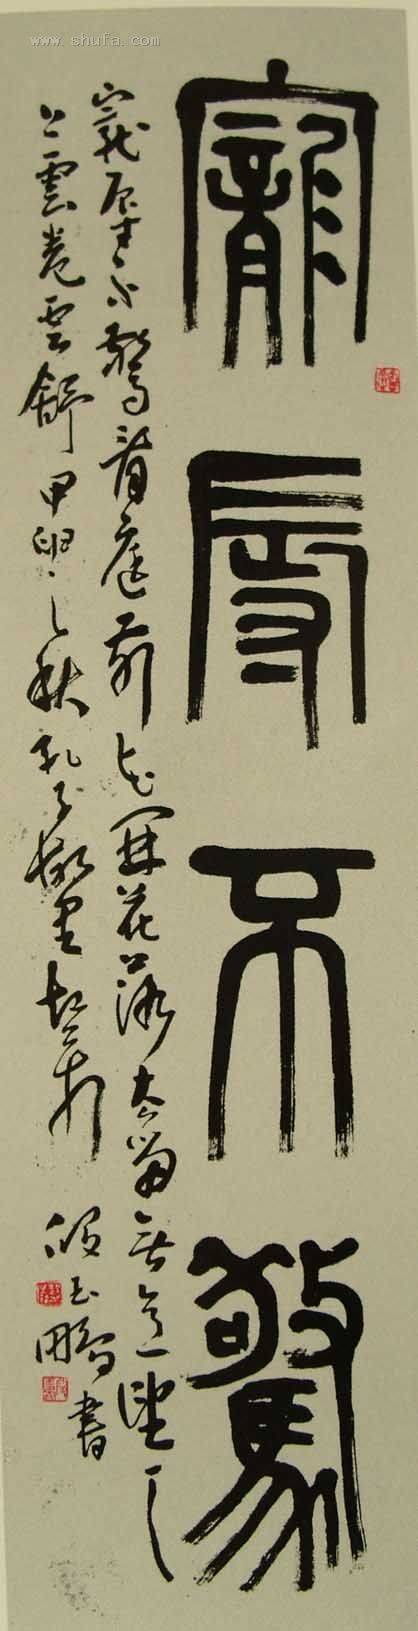 www.shufa.com
寵辱不驚
寵辱不驚看庭前花開花落去留無意望天
上雲卷雲舒甲申之秋孔子故里
段玉鵬書